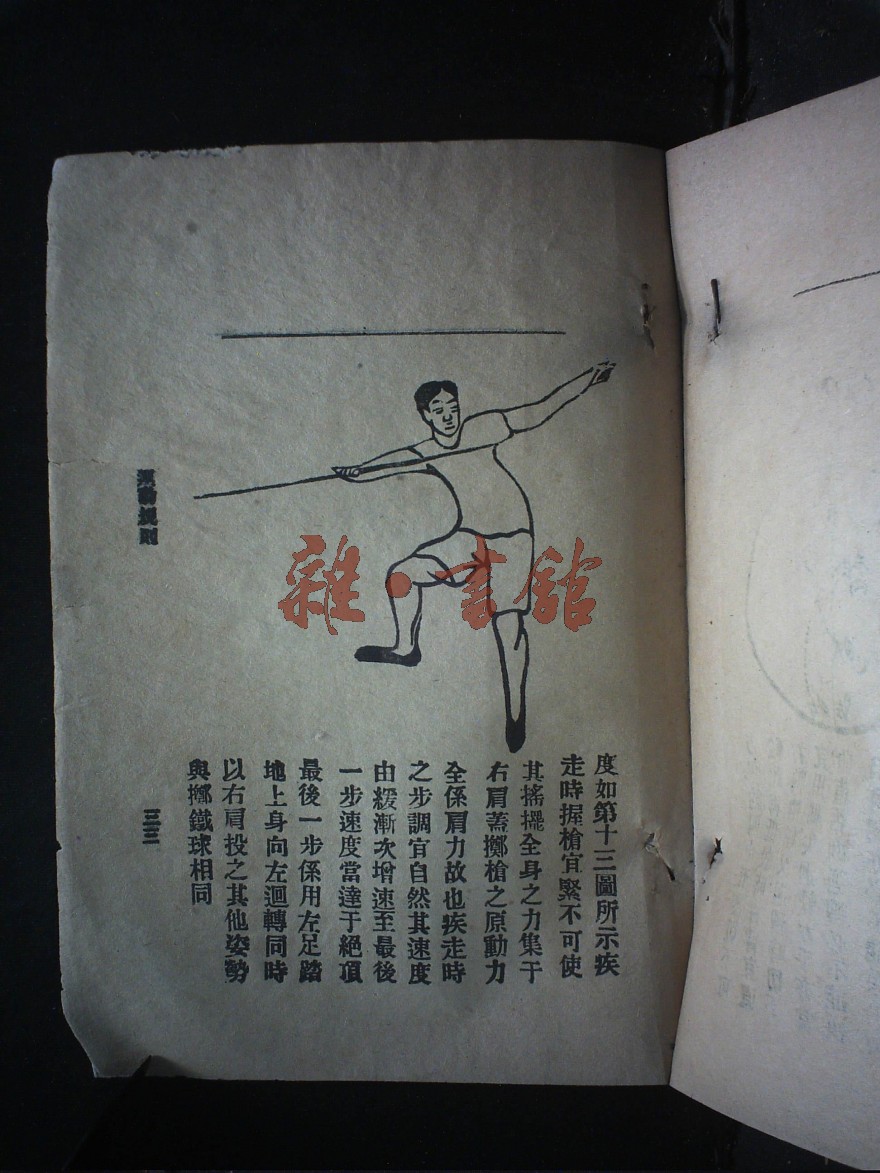 度如第十三圖所示疾
走時握槍宜緊不可使
其搖擺全身之力集于
右肩蓋擲槍之原動力
全係肩力故也疾走時
之步調宜自然其速度
由緩漸次增速至最後
一步速度當達于絕頂
最後一步係用左足踏
地上身向左迴轉同時
以右肩投之其他姿勢
與擲鐵球相同
運動規則
三三
雜·書館